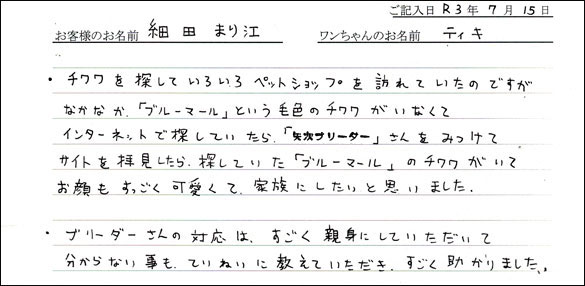 ご記入日 R3年7月15日
お客様のお名前 細田 まり江 ワンちゃんのお名前 ティキ
・チワワを探していろいろペットショップを訪れていたのですが
なかなか、「ブルーマール」という毛色のチワワがいなくて
インターネットで探していたら、「矢次ブリーダー」さんをみつけて
サイトを拝見したら、探していた「ブルーマール」のチワワがいて
お顔もすっごく可愛くて、家族にしたいと思いました。
・ブリーダーさんの対応は、すごく親身にしていただいて
分からない事も、ていねいに教えていただき、すごく助かりました。